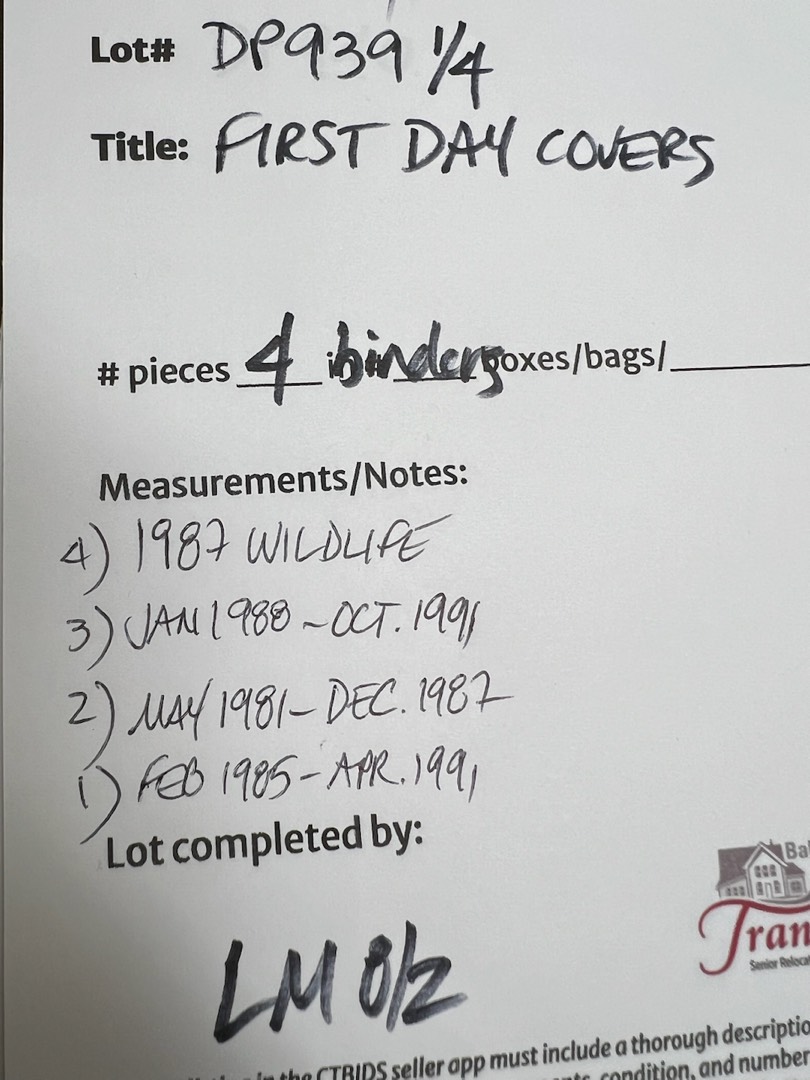 Lot# DP939 1/4
Title: FIRST DAY COVERS
# pieces 4 in binders boxes/bags/
Measurements/Notes:
4) 1987 WILDLIFE
3) JAN 1988 - OCT. 1991
2) MAY 1981 - DEC. 1987
1) FEB 1985 - APR. 1991
Lot completed by:
LM 8/2
Bal
Tran
Senior Relocat
in the CTBIDS seller app must include a thorough descriptio
condition, and number